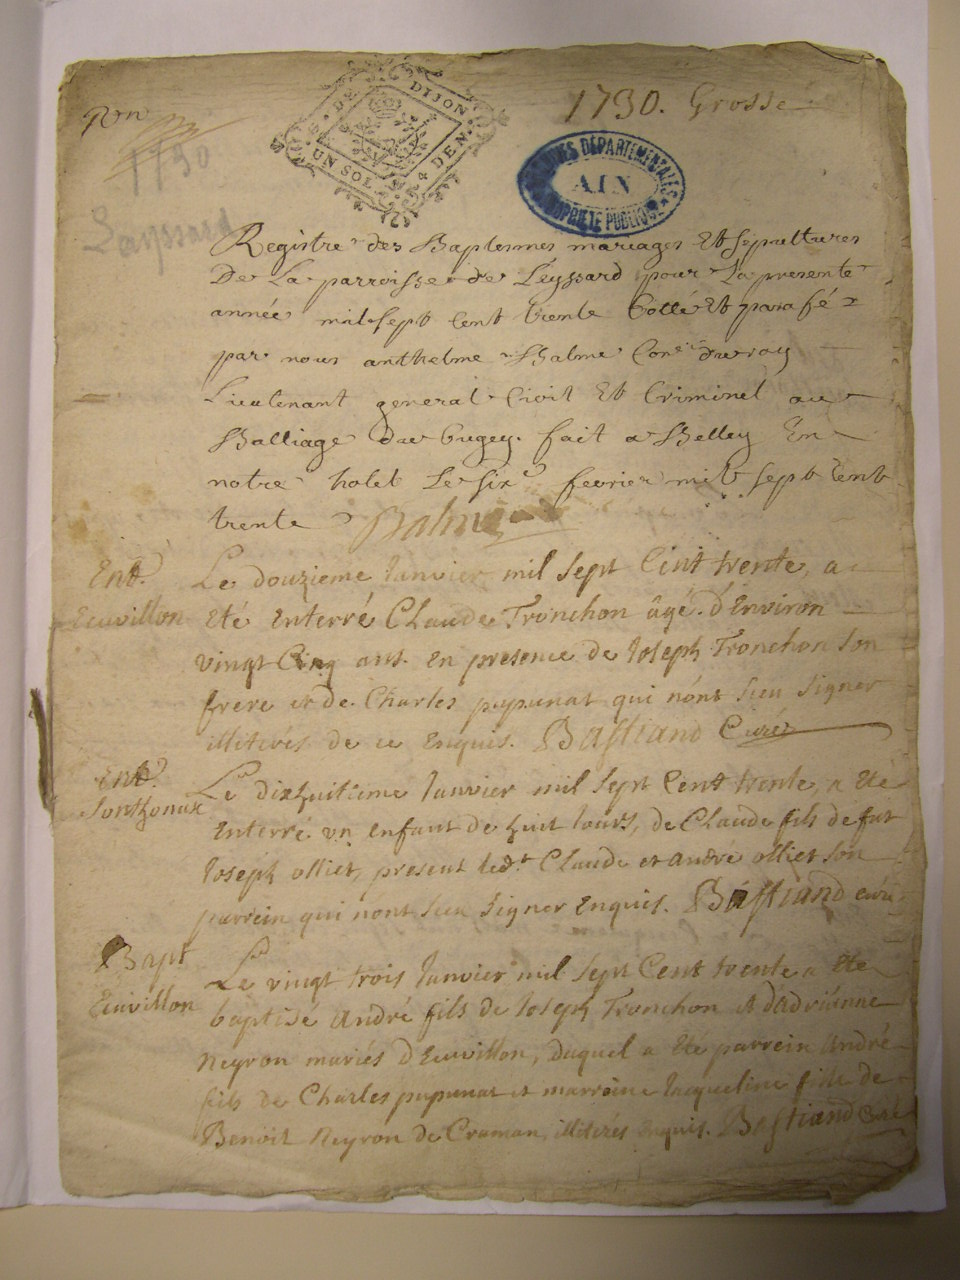 1730. Grosse
G. DE DIJON
UN SOL 4 DEN.
ARCHIVES DÉPARTEMENTALES
AIN
PROPRIÉTÉ PUBLIQUE
1730
Layssard
Registre des Baptesmes mariages Et sepultures
De La parroisse de Leyssard pour La presente
année mil sept Cent trente Collé Et parafé
par nous anthelme Balme Con.er du roy
Lieutenant general Civil Et Criminel au
Balliage du bugey. fait a Belley En
notre hotel Le six.e fevrier mil sept Cent
trente Balme
Ent.
Euvillon
Le douzieme Janvier mil sept Cent trente, a
Eté Enterré Claude Tronchon âgé d'Environ
vingt Cinq ans. En presence de Joseph Tronchon son
frere et de Charles pupunat qui nónt sceu signer
illiterés de ce Enquis. Bastiand Curé
Ent.
Sonthonax
Le dixhuitieme Janvier mil sept Cent trente, a Eté
Enterré un enfant de huit Jours, de Claude fils de fut
Joseph olliet, present led.t Claude et andré olliet son
parrein qui nont sceu signer Enquis. Bastiand curé
Bapt
Euvillon
Le vingt trois Janvier mil sept Cent trente a Eté
baptisé André fils de Joseph Tronchon et dadrienne
Neyron mariés d'Euvillon, duquel a Eté parrein André
fils de Charles pupunat et marreine Jacqueline fille de
Benoit Neyron de Craman, illiterés Enquis. Bastiand Curé